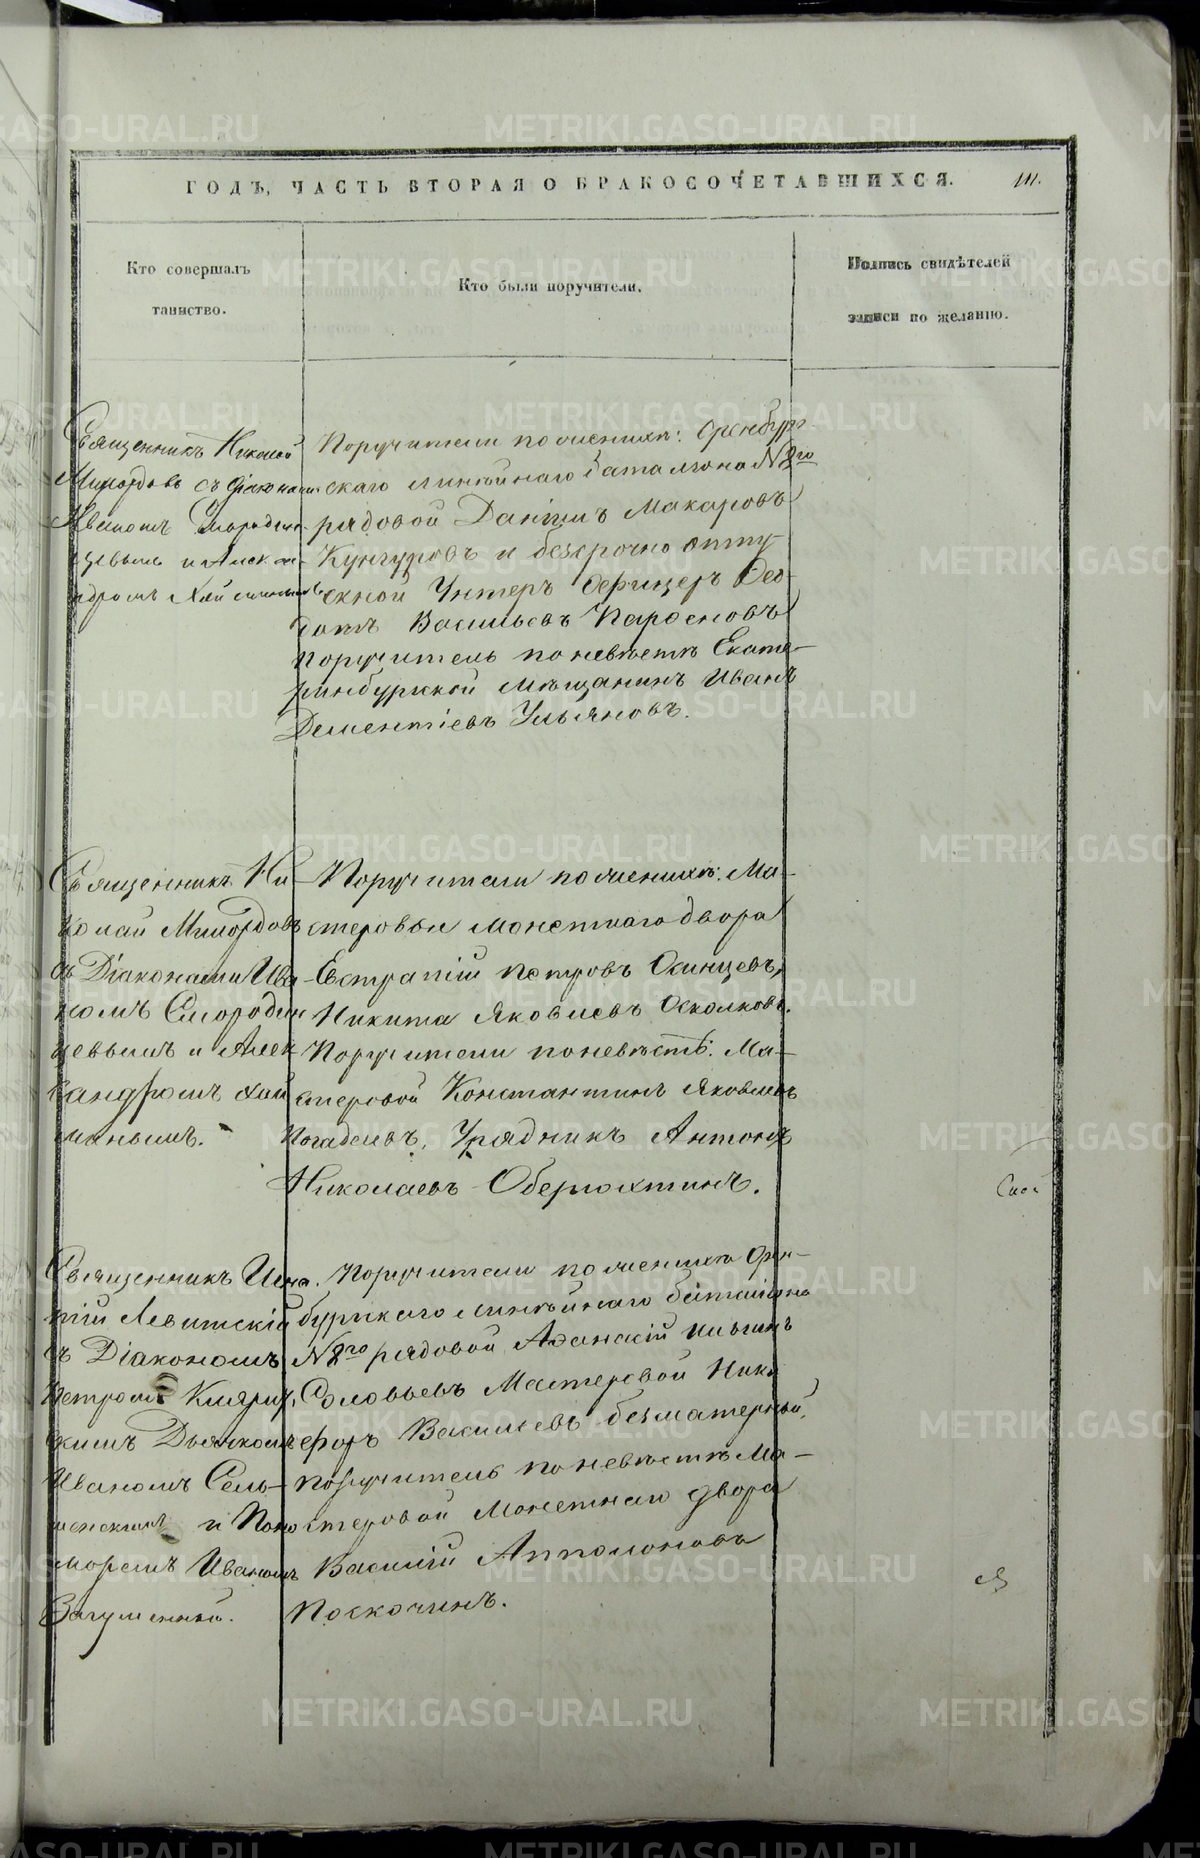 ГОДЪ, ЧАСТЬ ВТОРАЯ О БРАКОСОЧЕТАВШИХСЯ.
Кто совершалъ
таинство.
Кто были поручители.
Подпись свидѣтелей
записи по желанію.
Священникъ Николай
Милордовъ съ Діаконами
Иваномъ Смородин-
цевымъ и Алекса-
ндромъ
Поручители по женихѣ: Оренбург-
скаго линѣйнаго баталіона №2го
рядовой Данiилъ Макаровъ
Кунгуровъ и безсрочно отпу-
скной Унтеръ Офицеръ Ѳео-
дотъ Васильевъ Парѳеновъ
поручитель по невѣстѣ Екате-
ринбургской Мѣщанинъ Иванъ
Дементіевъ Ульяновъ.
Священникъ Ни-
колай Милордовъ
съ Діаконами Ива-
номъ Смородин
цевымъ и Алек
сандромъ
Поручители по женихѣ: Ма-
стеровые монетнаго двора
Евстратій Петровъ Осинцевъ,
Никита Яковлевъ Осколковъ.
Поручители по невѣстѣ: Ма-
стеровой Константинъ Яковлевъ
Погадаевъ, Урядникъ Антонъ
Николаевъ Оберюхтинъ.
Священникъ Игна-
тій Левитскій
съ Діакономъ
Петромъ
скимъ Дьячкомъ
Иваномъ Сель-
менскимъ и Поно
маремъ Иваномъ
Загуменный.
Поручители по женихѣ Орен-
бургскаго линѣйнаго баталіона
№2го рядовой Аѳанасій Ильинъ
Соловьевъ Мастеровой Ники
форъ Васильевъ безматерный,
поручитель по невѣстѣ Ма-
стеровой Монетнаго двора
Василій Апполоновъ
Поскочинъ.
METRIKI.GASO-URAL.RU